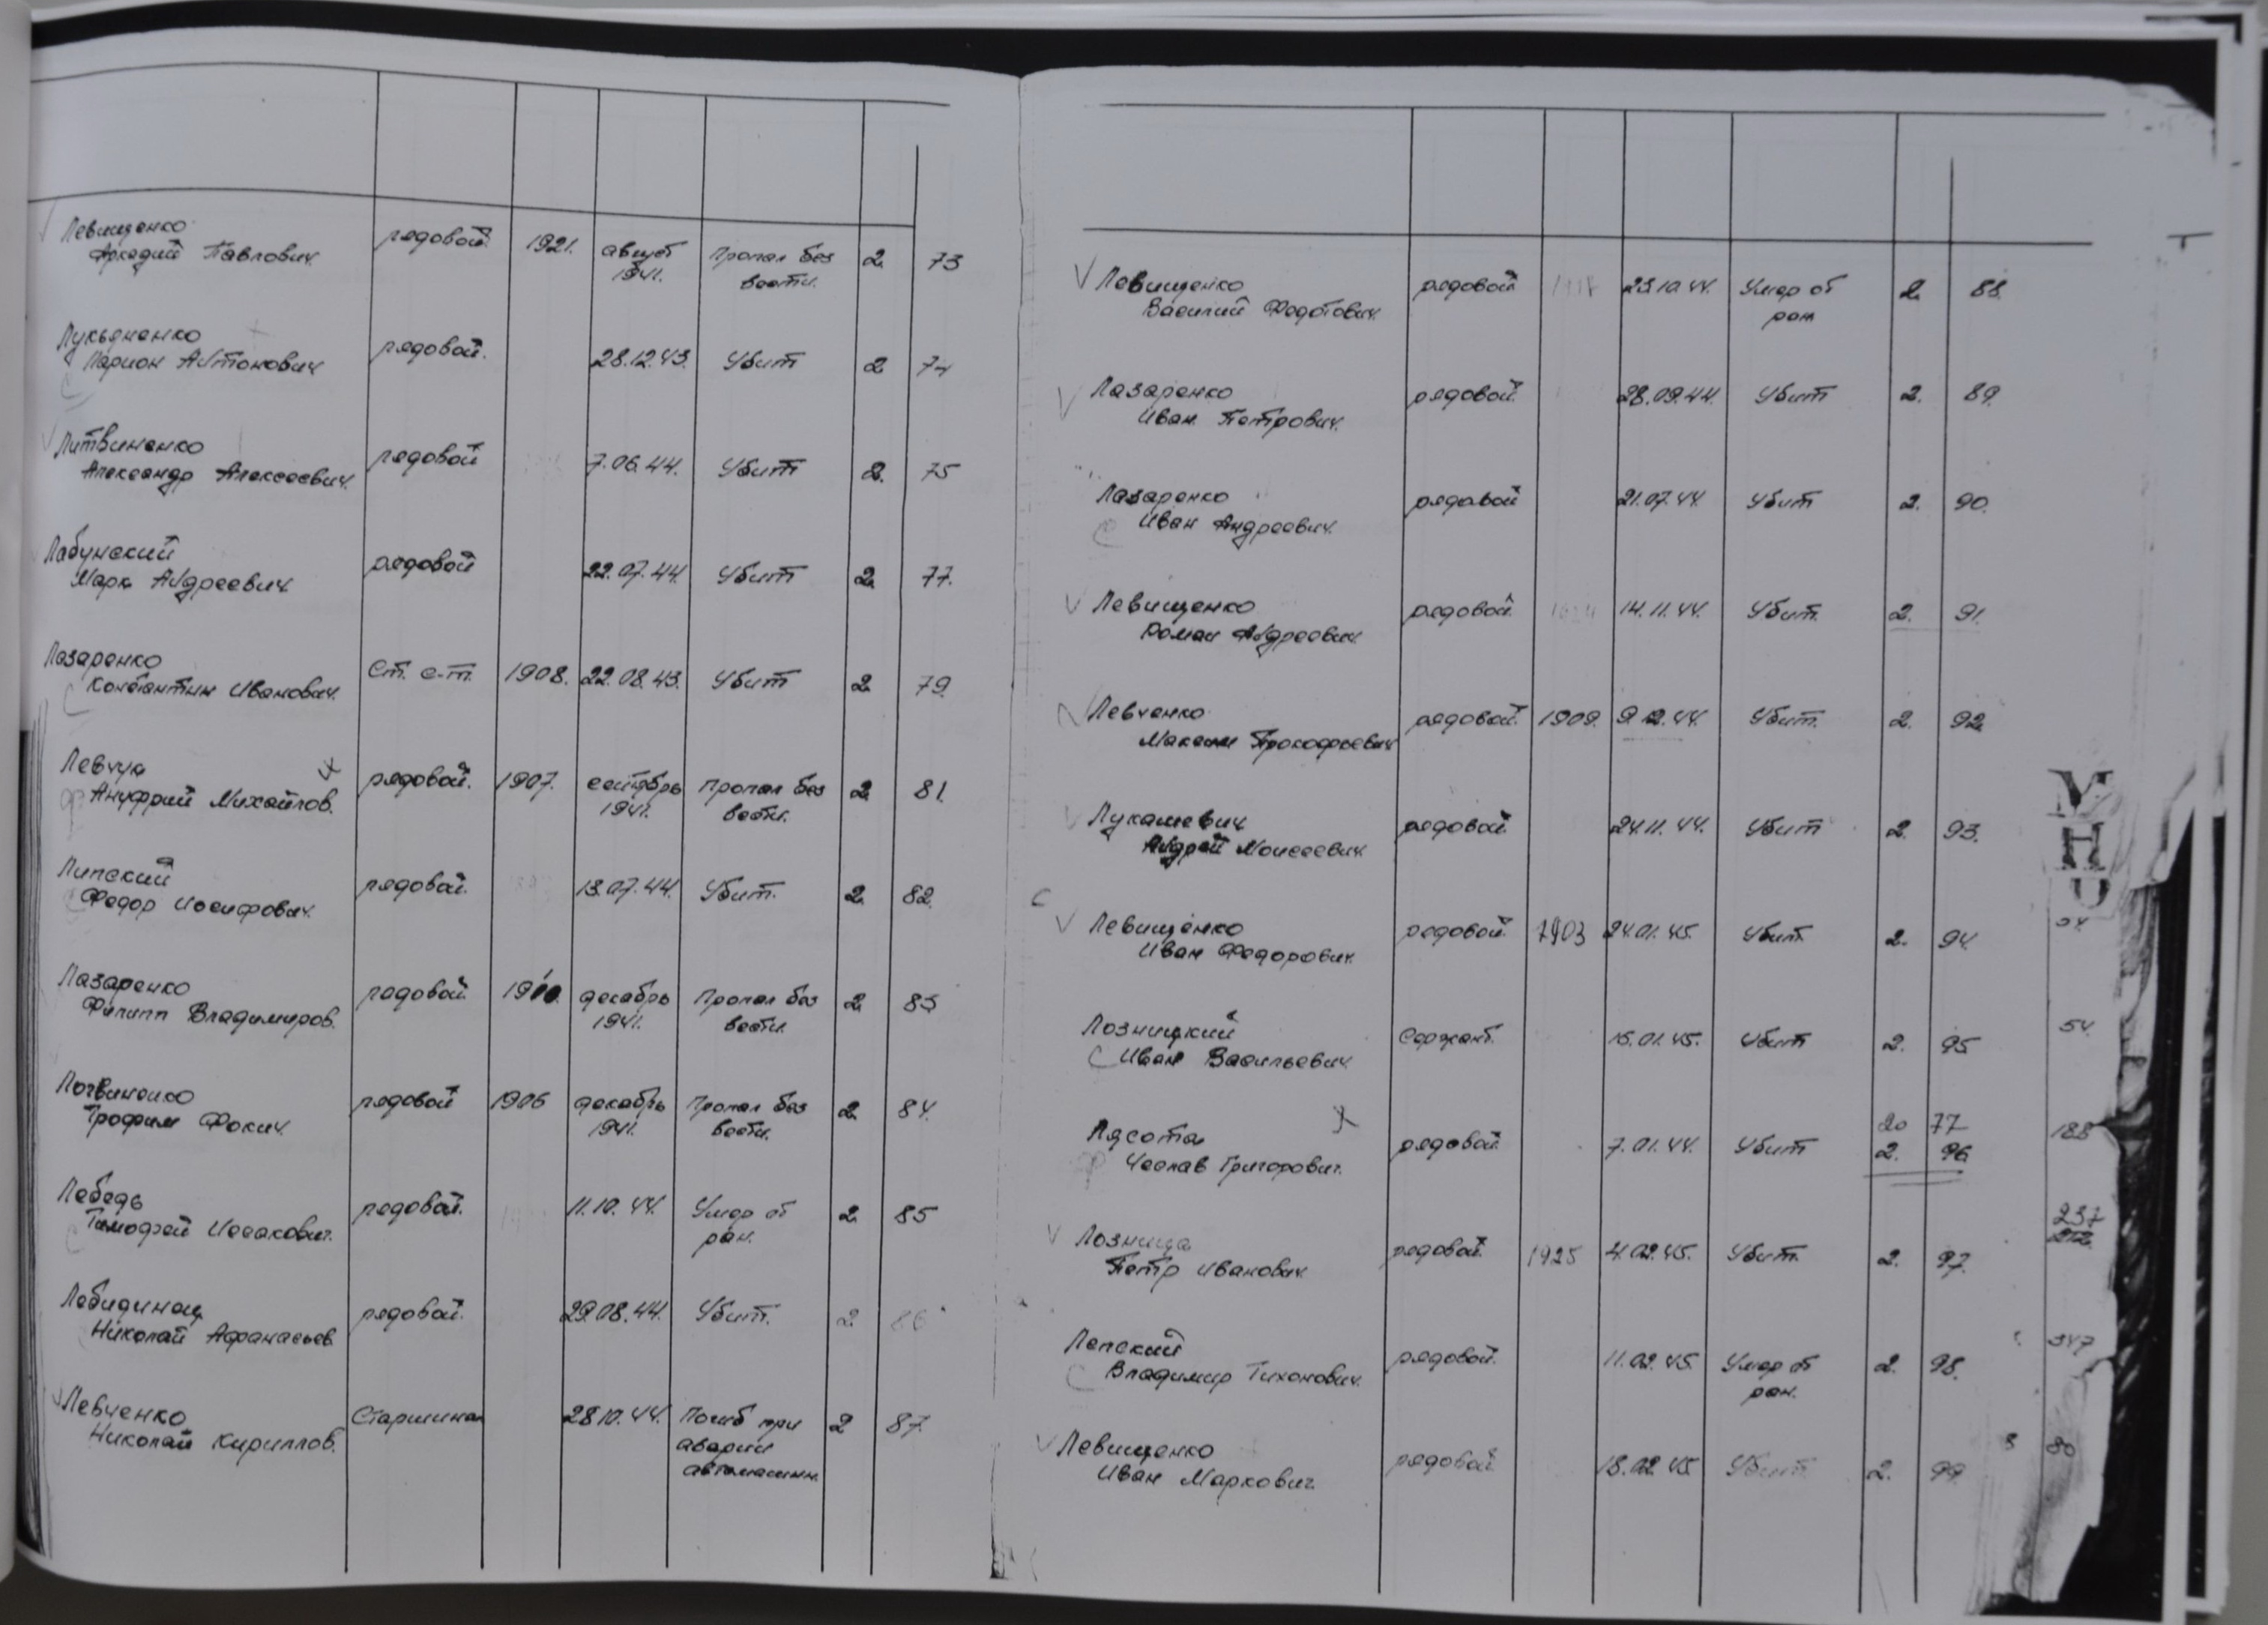 Левищенко рядовой 1921. август Пропал без 2 73
Аркадий Павлович. 1941. вести.
Лукьяненко рядовой. 28.12.43. Убит 2 74
Ларион Антонович
Литвиненко рядовой 7.06.44. Убит 2. 75
Александр Алексеевич.
Лабунский рядовой 22.07.44. Убит 2 77.
Марк Андреевич
Лазаренко Ст. с-т. 1908. 22.08.43. Убит 2 79.
Константин Иванович.
Левчук рядовой. 1907. сентябрь Пропал без 2 81.
Ануфрий Михайлов. 1941. вести.
Липский рядовой. 13.07.44. Убит. 2 82.
Федор Иосифович.
Лазаренко рядовой. декабрь Пропал без 2 83
Филипп Владимиров. 1941. вести.
Логвиненко рядовой 1906 декабрь Пропал без 2 84.
Трофим Фокич. 1941. вести.
Лебедь рядовой. 11.10.44. Умер от 2 85
Тимофей Исакович. ран.
Лебидинец рядовой. 29.08.44. Убит. 2 86
Николай Афанасьев.
Левченко Старшина 28.10.44. Погиб при 2 87.
Николай Кириллов. аварии
автомашин.
Левищенко рядовой 23.10.44. Умер от 2. 88.
Василий Федотович. ран
Лазаренко рядовой. 28.09.44. Убит 2. 89.
Иван Петрович.
Лазаренко рядовой 21.07.44. Убит 2. 90.
Иван Андреевич.
Левищенко рядовой. 14.11.44. Убит. 2. 91.
Роман Андреевич.
Левченко рядовой. 1909. 9.12.44. Убит. 2. 92.
Максим Прокофьевич
Лукашевич рядовой. 24.11.44. Убит 2. 93.
Андрей Моисеевич.
Левищенко рядовой. 1903 24.01.45. Убит. 2. 94.
Иван Федорович.
Лозницкий Сержант. 15.01.45. Убит 2. 95 54.
Иван Васильевич
20 77
Лясота рядовой. 7.01.44. Убит 2. 96 188
Чеслав Григорович.
237
Лозница рядовой. 1925 4.02.45. Убит. 2. 97.
Петр Иванович.
Лепский рядовой. 11.02.45 Умер от 2. 98. 347
Владимир Тихонович. ран.
Левищенко рядовой 18.02.45 Убит 2. 99. 80
Иван Маркович.